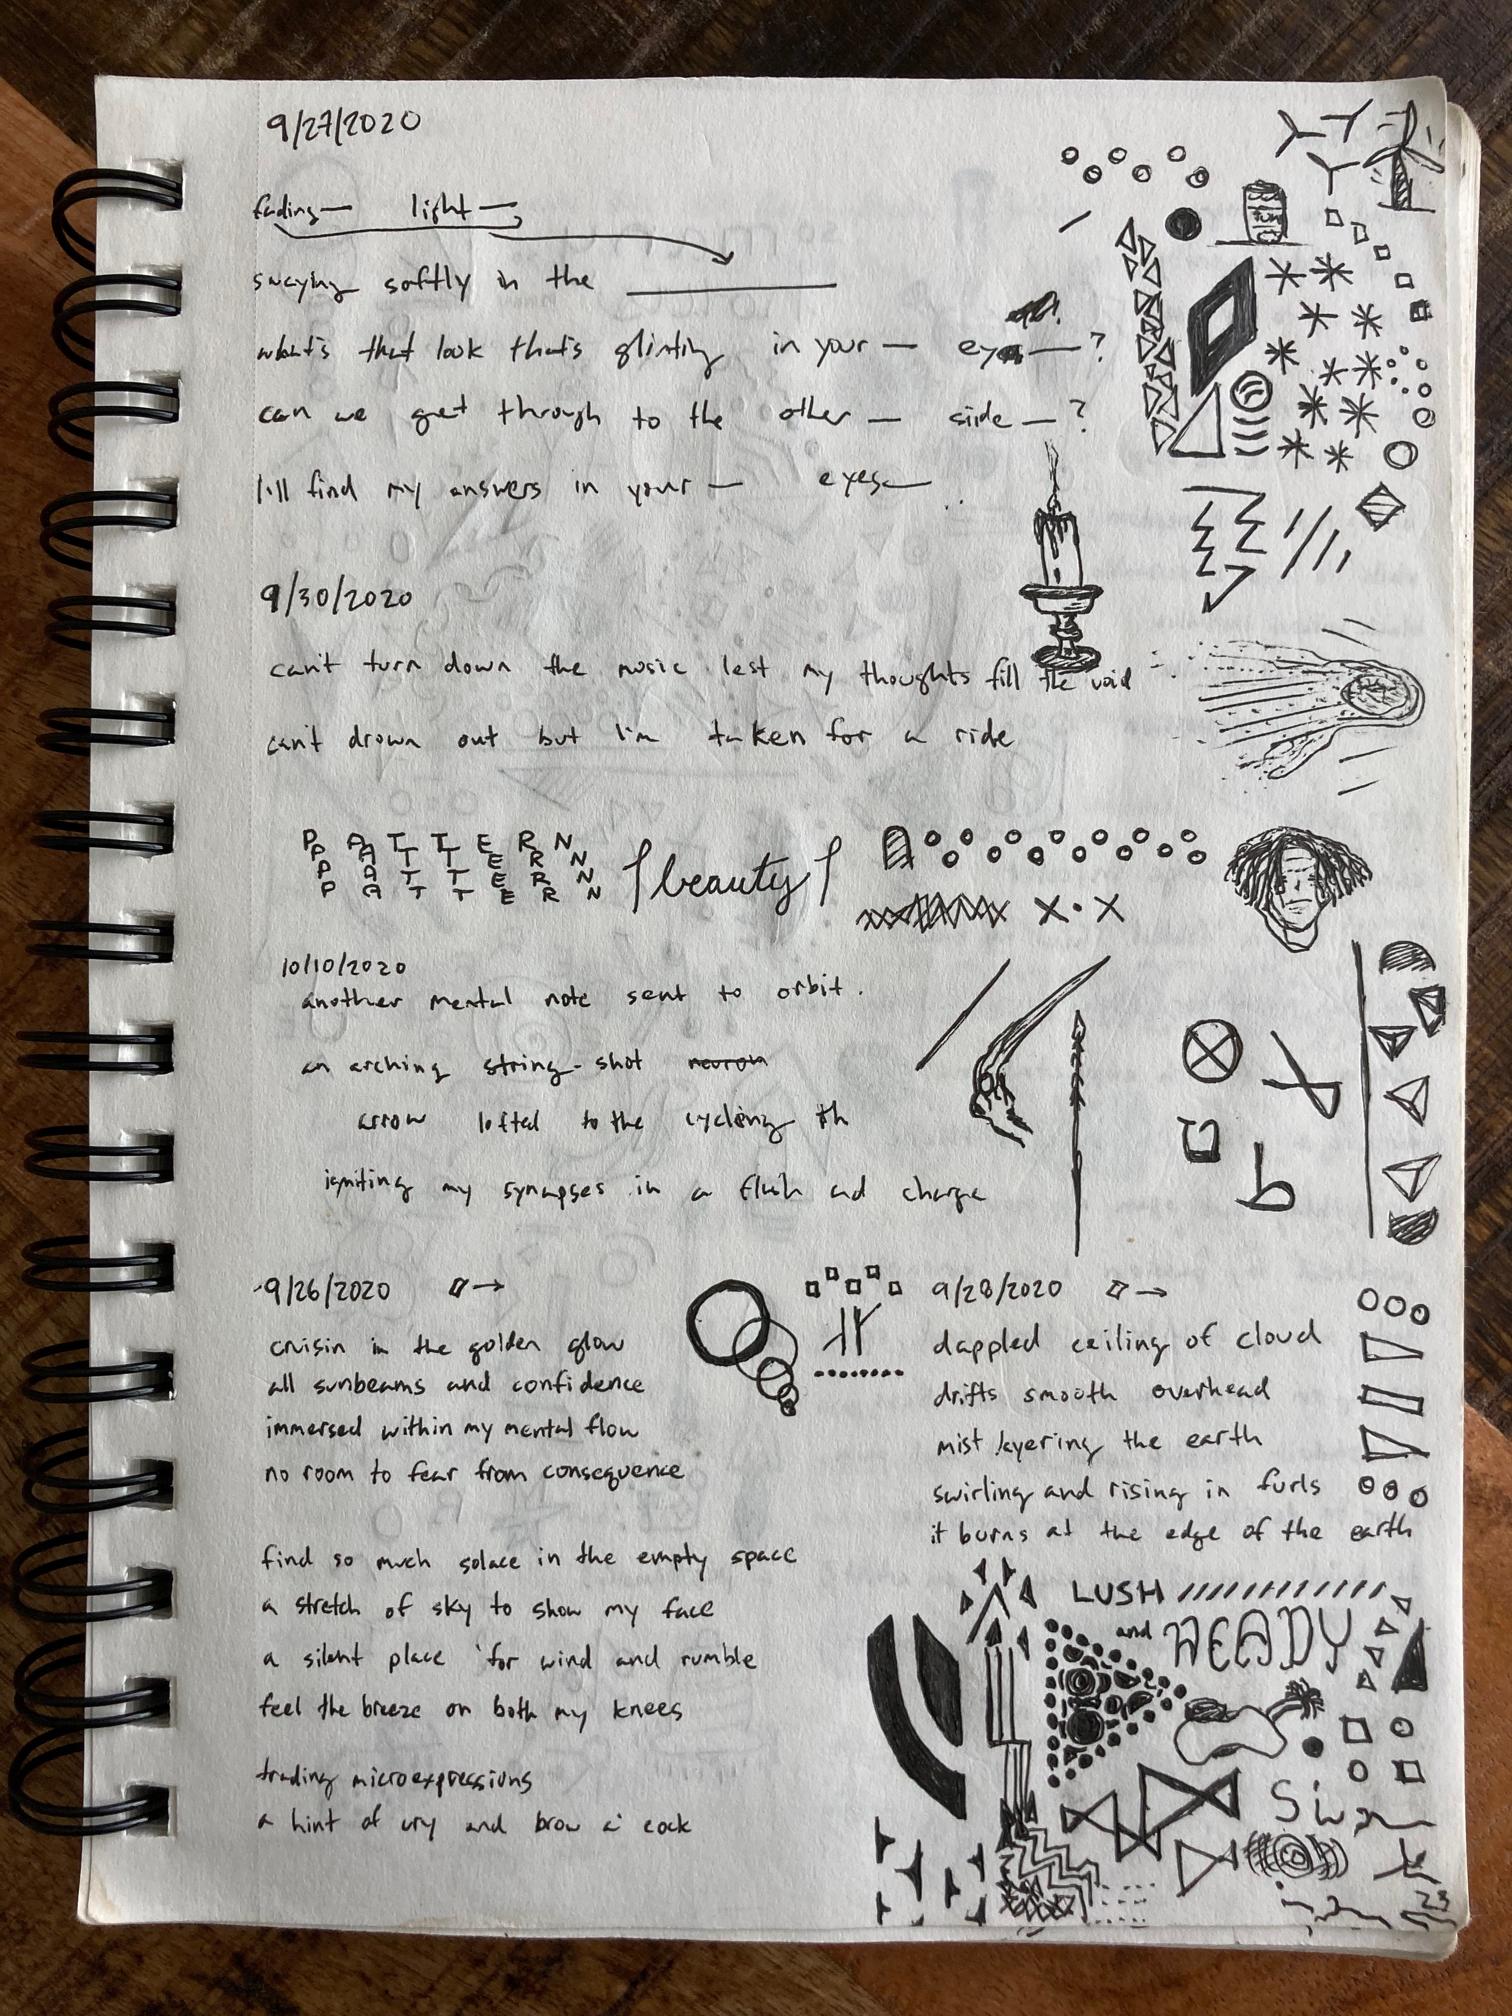 9/27/2020
fading— light—
swaying softly in the
what's that look that's glinting in your — eye — ?
can we get through to the other — side — ?
I'll find my answers in your — eyes—
9/30/2020
can't turn down the music lest my thoughts fill the void
can't drown out but I'm taken for a ride
P A T T E R N
P A T T E R N
P A T T E R N
P A T T E R N
beauty
10/10/2020
another mental note sent to orbit.
an arching string-shot neuron
arrow lofted to the cycling th
igniting my synapses in a flush and charge
9/26/2020
cruisin in the golden glow
all sunbeams and confidence
immersed within my mental flow
no room to fear from consequence
find so much solace in the empty space
a stretch of sky to show my face
a silent place for wind and rumble
feel the breeze on both my knees
trading microexpressions
a hint of wry and brow a' cock
9/28/2020
dappled ceiling of cloud
drifts smooth overhead
mist layering the earth
swirling and rising in furls
it burns at the edge of the earth
LUSH
and HEADY
23